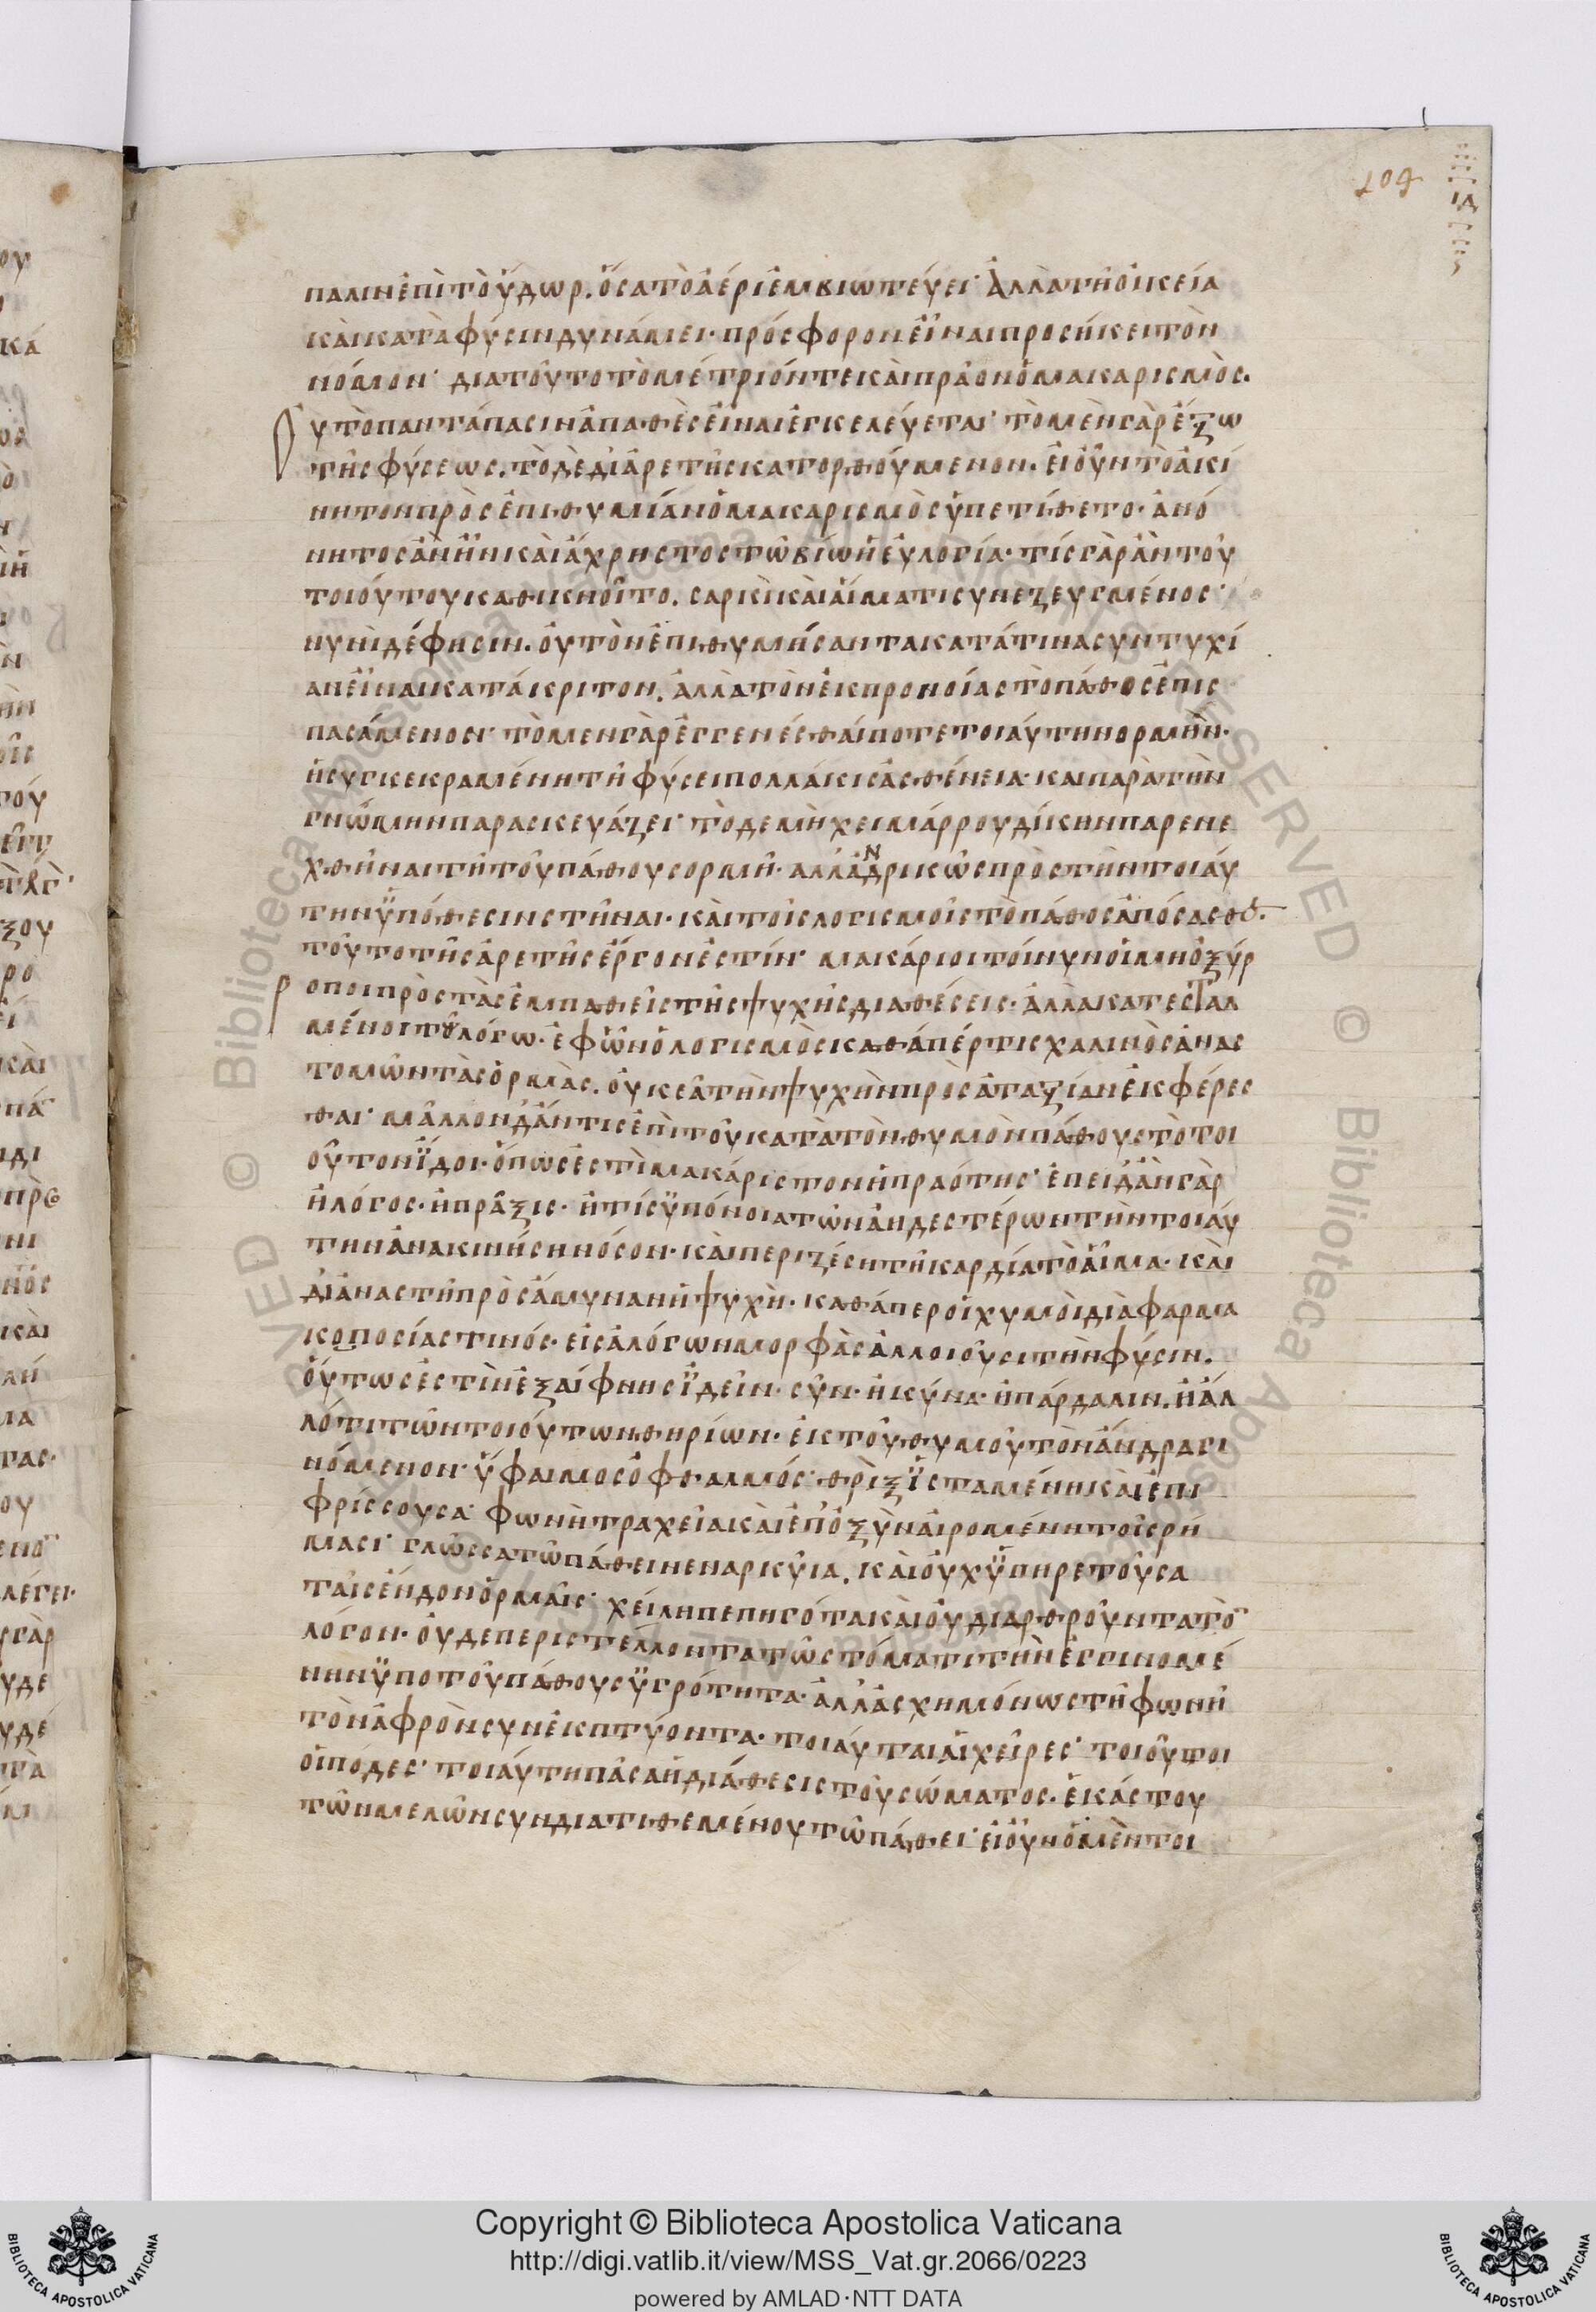 109
ΙΔ
πάλιν ἐπὶ τὸ ὕδωρ. ὅσα τὸ ἀέρι ἐμβιωτεύει· Ἀλλὰ τῆ οἰκεία
καὶ κατὰ φύσιν δυνάμει· πρόσφορον εἶναι προσήκει τὸν
νόμον· διατοῦτο τὸ μέτριόν τε καὶ πρᾶον ὁ μακαρισμὸς.
Οὐ τὸ παντάπασιν ἀπαθὲς εἶναι ἐγκελεύεται· τὸ μὲν γὰρ ἔξω
τῆς φύσεως. τὸ δὲ δι᾽ ἀρετῆς κατορθούμενον. εἰ οὖν τὸ ἀκί
νητον πρὸς ἐπιθυμίαν ὁ μακαρισμὸς ὑπετίθετο· ἀνό
νητος ἂν ἦν καὶ ἄχρηστος τῶ βίω ἡ εὐλογία· τίς γὰρ ἂν τοῦ
τοιούτου καθικνοῖτο. σαρκὶ καὶ αἵματι συνεζευγμένος·
νυνὶ δέ φησιν. οὐ τὸν ἐπιθυμήσαντα κατά τινα συντυχί
αν εἶναι κατάκριτον. ἀλλὰ τὸν ἐκ προνοίας τὸ πάθος ἐπισ
πασάμενον· τὸ μεν γὰρ ἐγγενέσθαί ποτε τοιαύτην ορμὴν·
ἡ συγκεκραμένη τῆ φύσει πολλάκις ἀσθένεια· και παρὰ τὴν
γνώμην παρασκευάζει· τὸ δε μὴ χειμάρρου δίκην παρενε
χθῆναι τῆ τοῦ πάθους ορμῆ· αλλ᾽ ἀνδρικῶς πρὸς τὴν τοιάυ
την ὑπόθεσιν στῆναι· καὶ τοῖς λογισμοῖς τὸ πάθος ἀπόσασθαι.
τοῦτο τῆς ἀρετῆς ἔργον ἐστίν· μακάριοι τοίνυν οἱ μὴ ὀξύρ
οποι πρὸς τὰς ἐμπαθεῖς τῆς ψυχῆς διαθέσεις· ἀλλὰ κατεσταλ
μένοι τῶ λόγω· ἐφ᾽ ὧν ὁ λογισμὸς καθάπέρ τις χαλινὸς ἀνασ
τομῶν τὰς ὁρμὰς. οὐκ εᾶ τὴν ψυχὴν πρὸς ἀταξίαν ἐκφέρεσ
θαι· μᾶλλον δ᾽ ἄν τις ἐπὶ τοῦ κατὰ τὸν θυμὸν πάθους τὸ τοι
οῦτον ἴδοι· ὅπως ἐστὶ μακάριστον ἡ πραότης· ἐπειδ᾽ ἂν γὰρ
ἢ λόγος· ἢ πρᾶξις· ἤ τίς ὑπόνοια τῶν ἀηδεστέρων τὴν τοιάυ
την ἀνακινήση νόσον· καὶ περιζέση τῆ καρδία τὸ αἷμα· καὶ
διἀναστῆ πρὸς ἄμυναν ἡ ψυχὴ· καθάπερ οἱ χυμοὶ διὰ φαρμα
κοποσίας τινός· εἰς ἀλόγων μορφὰς ἀλλοιοῦσι τὴν φύσιν.
οὕτως ἐστὶν ἐξαίφνης ἰδεῖν· σῦν· ἢ κύνα· ἢ πάρδαλιν. ἢ ἄλ
λό τι τῶν τοιούτων θηρίων· ἐκ τοῦ θυμοῦ τὸν ἄνδρα γι
νόμενον· ὕφαιμος ὀφθαλμός· θρὶξ ἱσταμένη καὶ ἐπι
φρίσσουσα· φωνὴ τραχεῖα καὶ ἐπ᾽ ὀξὺν αἰρομένη τοῖς ρή
μασι· γλῶσσα τῶ πάθει νεναρκυῖα. καὶ οὐχ ὑπηρετοῦσα
ταῖς ἔνδον ὁρμαῖς· χείλη πεπηγότα καὶ οὐ διαρθροῦντα τὸν
λόγον· οὐδε περιστέλλοντα τῶ στόματι τὴν ἐγγινομέ
νην ὑπο τοῦ πάθους ὑγρότητα· ἀλλ᾽ ἀσχημόνως τῆ φωνῆ
τὸν ἀφρὸν συνεκπτύοντα· τοιάυται αἱ χεῖρες· τοιοῦτοι
οἱ πόδες· τοιάυτη πᾶσα ἡ διάθεσις τοῦ σώματος· ἑκάστου
τῶν μελῶν συνδιατιθεμένου τῶ πάθει· εἰ οὖν ὁ μὲν τοι
Copyright © Biblioteca Apostolica Vaticana
http://digi.vatlib.it/view/MSS_Vat.gr.2066/0223
powered by AMLAD·NTT DATA